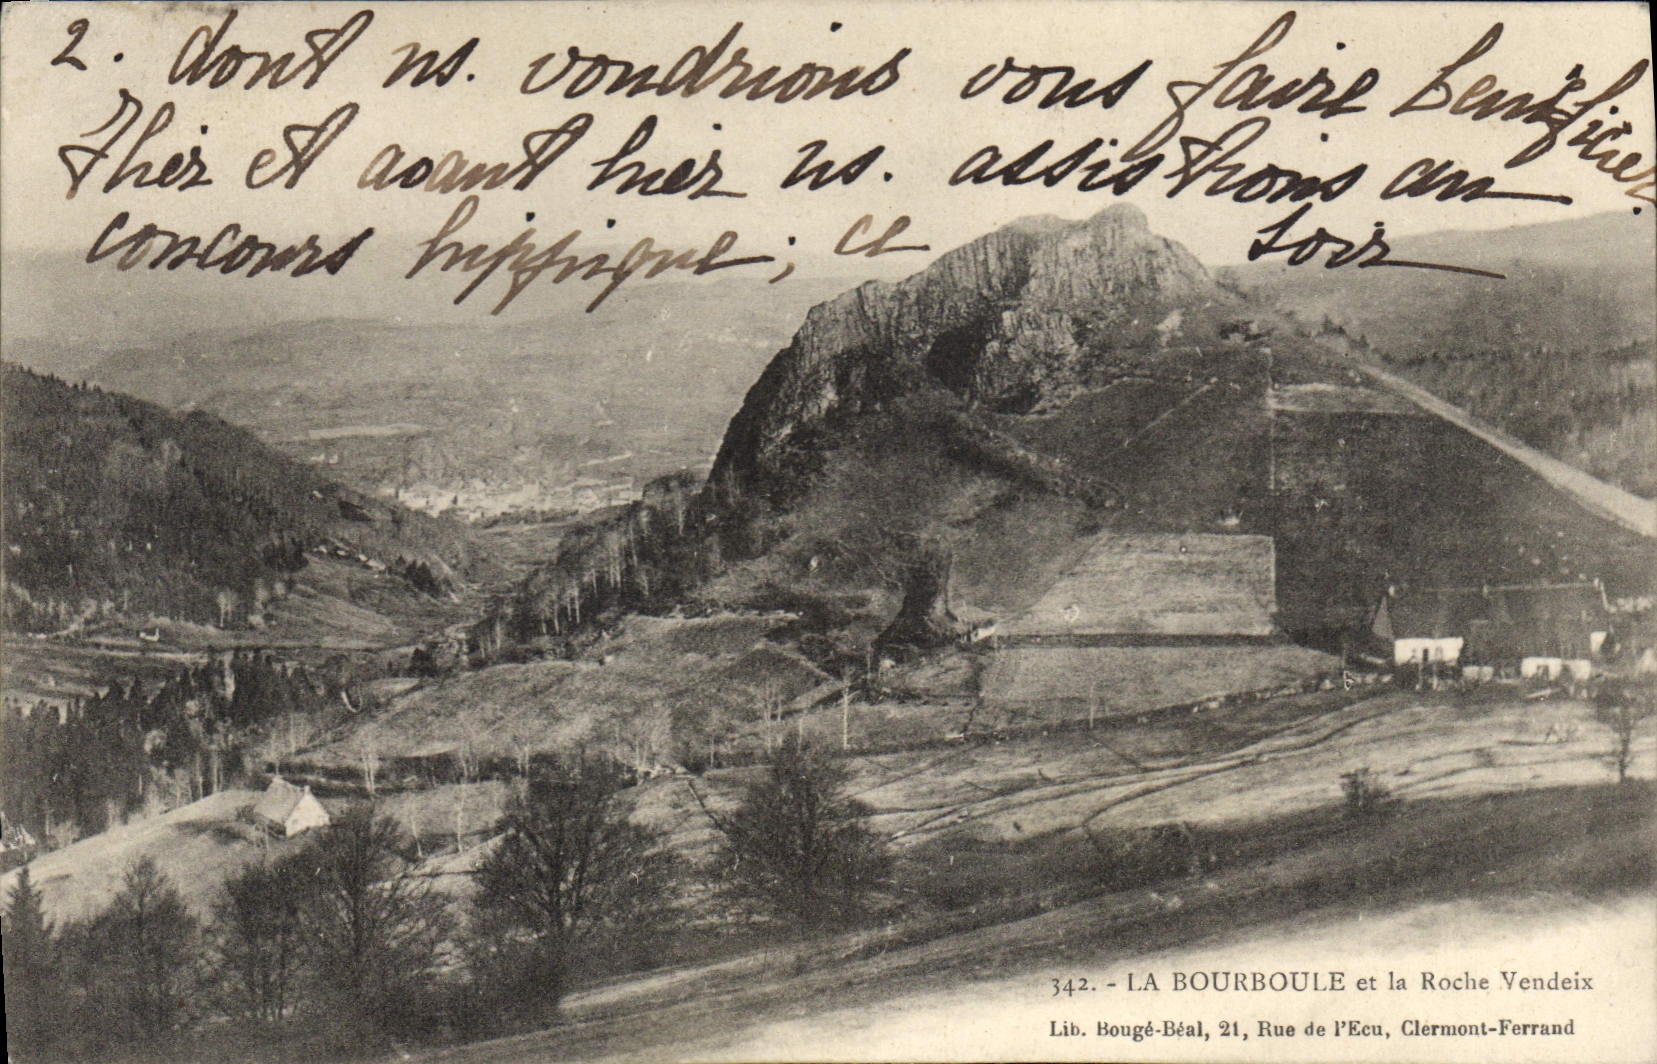 2. dont ns. voudrions vous faire bénéficier.
Hier et avant hier ns. assistions au
concours hippique ; ce soir
342. - LA BOURBOULE et la Roche Vendeix
Lib. Bougé-Béal, 21, Rue de l'Ecu, Clermont-Ferrand